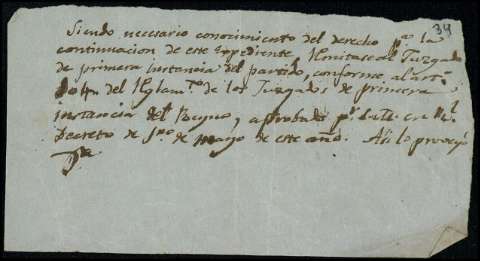 34
Siendo necesario conocimiento del derecho pª la
continuacion de este Expediente Remitase al Juzgado
de primera instancia del partido, conforme al artº
del Reglamtº de los Juzgados de primera
instancia del Reyno, y aprobado pr S.M. en Rl
Decreto de 1ro de Mayo de este año. Asi lo proveyó